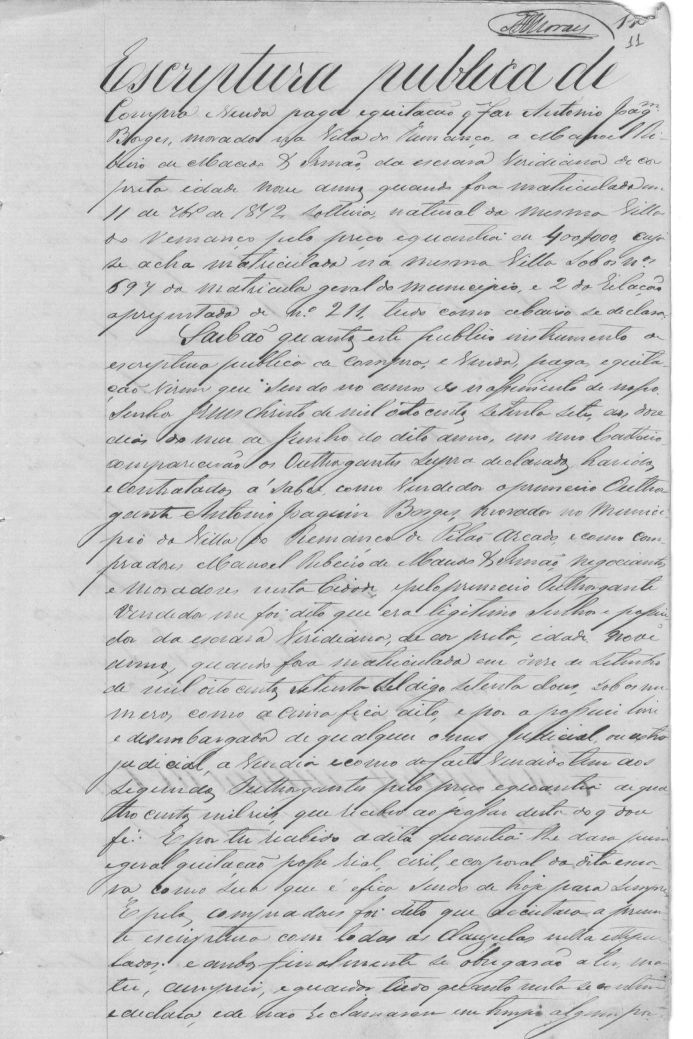 Moraes
11
Escriptura publica de
Compra e Venda paga e quitação q. faz Antonio Joaqm.
Borges, morador na Villa do Remanço, a Manoel Ri-
beiro de Macedo & Irmão, da escrava Viridiana de cor
preta idade nove annos quando fora matriculada em
11 de 7brº de 1872, solteira, natural da mesma Villa
do Remanço pelo preço e quantia de 400$000, cuja
se acha matriculada na mesma Villa sob os nos
697 da matricula geral do municipio, e 2 da relação
aprezentada de nº 211, tudo como abaixo se declara
Saibão quantos este publico instrumento de
escriptura publica de compra, e venda, paga, e quita-
ção virem que sendo no anno do nascimento de nosso
Senhor Jesus Christo de mil oito centos setenta sete, aos doze
dias do mez de Junho do dito anno, em meo Cartorio
comparecerão os Outhorgantes supra declarados, havidos
e contratados á saber, como vendedor o primeiro Outhor-
gante Antonio Joaquim Borges, morador no Munici-
pio da Villa do Remanço de Pilão Arcado, e como com-
pradores Manoel Ribeiro de Macedo & Irmão, negociantes,
e moradores nesta Cidade, e pelo primeiro Outhorgante
Vendedor me foi dito que era legitimo Senhor e possui-
dor da escrava Viridiana, de cor preta, idade nove
annos, quando fora matriculada em onze de Setembro
de mil oito centos setenta digo setenta dous, sob os nu-
meros como acima fica dito, e por a possuir livre
e desembargada de qualquer onus judicial, ou extra
judicial, a vendia e como de facto vendido tem aos
segundos Outhorgantes pelo preço e quantia de qua-
tro centos mil reis, que recebeo ao passar desta do q dou
fé: E por ter recebido a dita quantia lhe dava pura
e geral quitação posse rial, civil, e corporal da dita escra-
va como sua que é e fica sendo de hoje para sempre
E pelos compradores foi dito que aceitava a presen-
te escriptura com todas as clausulas nella estipu-
ladas; e ambos finalmente se obrigarão a ter, man-
ter, cumprir, e guardar tudo quanto nesta se contem
e declara, e de não reclamarem em tempo algum por